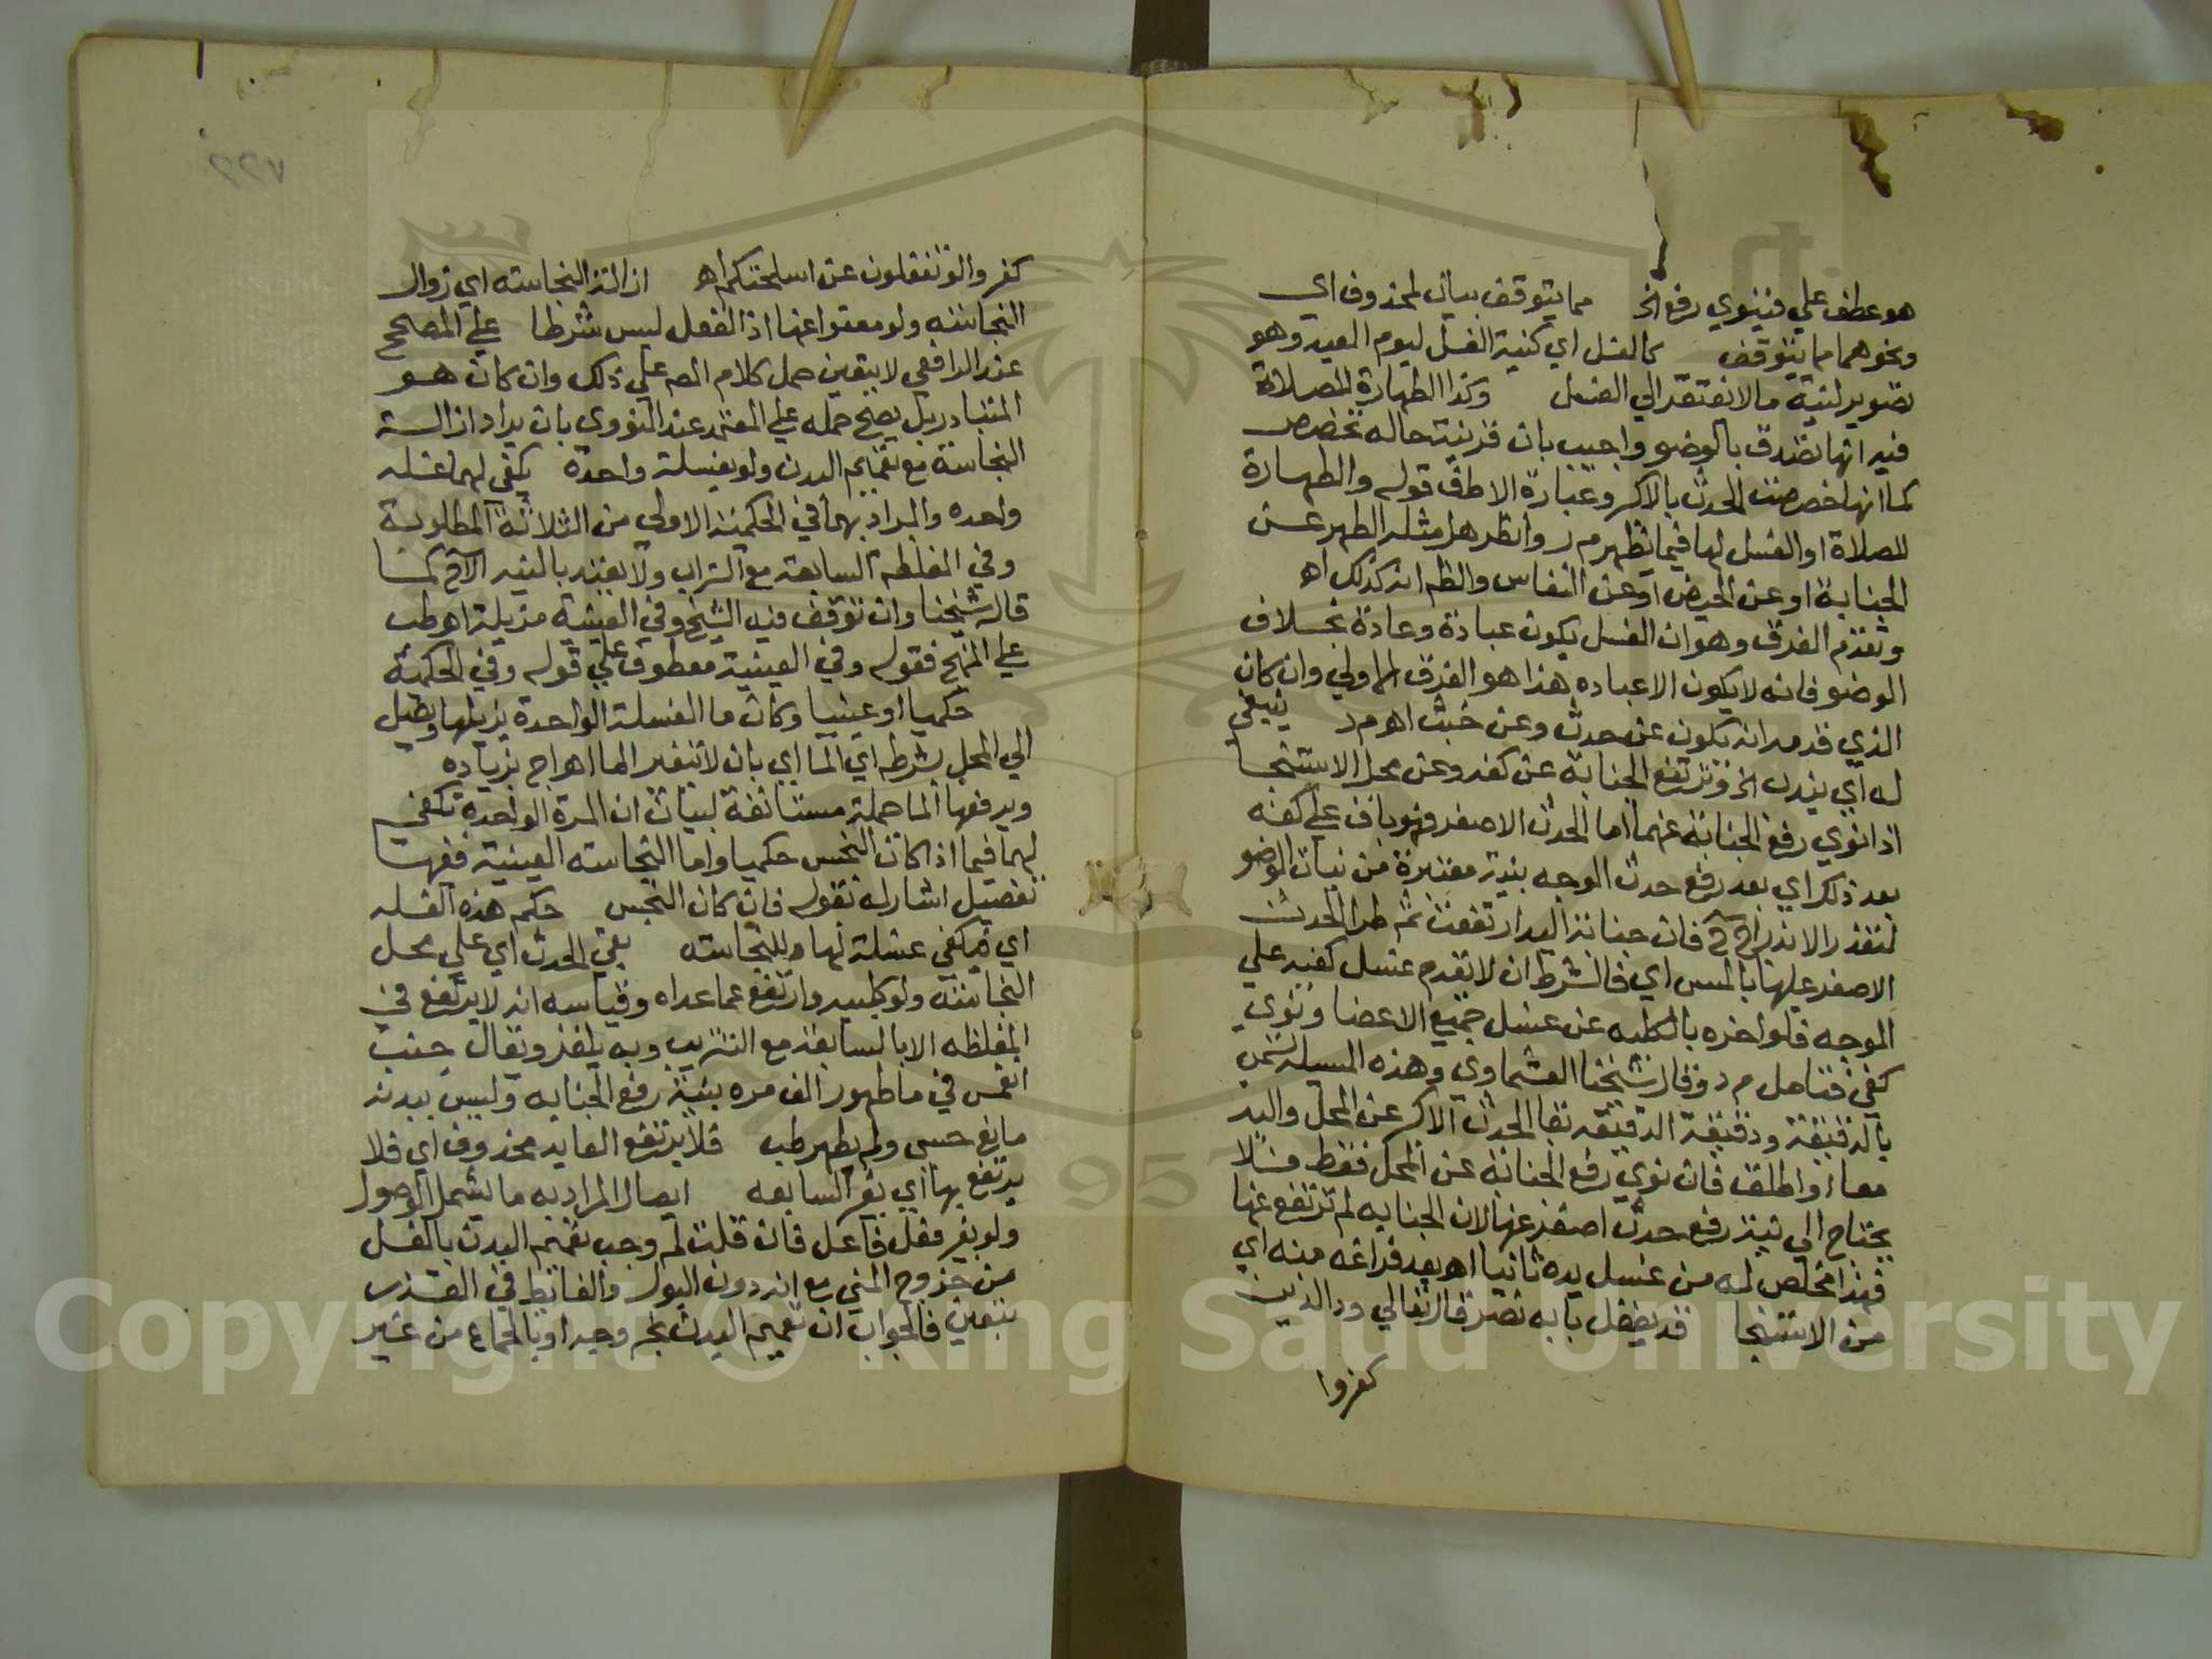 هو عطف علي فينوي رفع الخ مما يتوقف بيان لمحذوف اي
ونحوهما مما يتوقف كالغسل اي كنية الغسل ليوم العيد وهو
تصوير لنية ما لا تفتقر الي الغسل وكذا الطهارة للصلاة
فيه انها تصدق بالوضو واجيب بان قرينة حاله تخصص
كما انها خصصت الحدث بالاكبر وعبارة الاطفى قوله والطهارة
للصلاة او الغسل لها فيما يظهر م ر وانظر هل مثله الطهر عن
الجنابة او عن الحيض او عن النفاس والظ انه كذلك اه
وتقدم الفرق وهو ان الغسل يكون عبادة وعادة بخلاف
الوضو فانه لا يكون الا عباده هذا هو الفرق الاولي وان كان
الذي قدمه انه يكون عن حدث وعن خبث اه م د ينبغي
له اي يندب الخ وترتفع الجنابة عن كفه وعن محل الاستنجا
اذا نوي رفع الجنابة عنهما اما الحدث الاصغر فهو باق علي كفه
بعد ذلك اي بعد رفع حدث الوجه بنية معتبرة من نيات الوضو
لتعذر الاندراج ح فان جنابة اليد ارتفعت ثم طرا الحدث
الاصغر عليها بالمس اي فالشرط ان لا يقدم غسل كفيه علي
الوجه فلو اخره بالكليه عن غسل جميع الاعضا ونوي
كفي فتامل م د وقال شيخنا العشماوي وهذه المسيلة تسمي
بالدقيقة ودقيقة الدقيقه بقا الحدث الاكبر عن المحل واليد
معا او اطلق فان نوي رفع الجنابة عن المحل فقط فلا
يحتاج الي نية رفع حدث اصغر عنها لان الجنابه لم ترتفع عنها
فهذا مخلص له من غسل يده ثانيا اه بعد فراغه منه اي
من الاستنجا قد يغفل بابه نصر قال تعالي ود الذين
كفروا
٢٢٧
كفروا لو تغفلون عن اسلحتكم اه ازالة النجاسه اي زوال
النجاسه ولو معفوا عنها اذ الفعل ليس شرطا علي المصحح
عند الرافعي لا يتعين حمل كلام المص علي ذلك وان كان هو
المتبادر بل يصح حمله علي المعتمد عند النووي بان يراد ازالة
النجاسة مع تعميم البدن ولو بغسلة واحدة يكفي لهما غسله
واحده والمراد بهما في الحكمية الاولي من الثلاثة المطلوبة
وفي المغلظه السابعة مع التراب ولا يعتد بالنيه الآن كما
قاله شيخنا وان توقف فيه الشيخ وفي العينية مزيلة اه ط ب
علي المنهج فقوله وفي العينية معطوف علي قوله وفي الحكمية
حكميا او عينيا وكان ما الغسلة الواحدة يزيلها ويصل
الي المحل بشرطه اي الما اي بان لا يتغير الما اه ا ج بزياده
ويرفعها الما جملة مستانفة لبيان ان المرة الواحدة تكفي
لهما فيما اذا كان النجس حكميا واما النجاسه العينية ففيها
تفصيل اشار له بقوله فان كان النجس حكم هذه الغسله
اي فيكفي غسلة لها وللنجاسه بقي الحدث اي علي محل
النجاسه ولو كلبيه وارتفع عما عداه وقياسه انه لا يرتفع في
المغلظه الا بالسابعة مع التتريب وبه يلغز ويقال جنب
انغمس في ما طهور الف مره بنية رفع الجنابه وليس ببدنه
مانع حسي ولم يطهر ط ب فلا يرتفع العايد محذوف اي فلا
يرتفع بها اي بغير السابعه ايصال المراد به ما يشمل الوصول
ولو بغير فعل فاعل فان قلت لم وجب تعميم البدن بالغسل
من خروج المني مع انه دون البول والغايط في القذر
بيقين فالجواب ان تعميم البدن لم وجب او بالجماع من غير